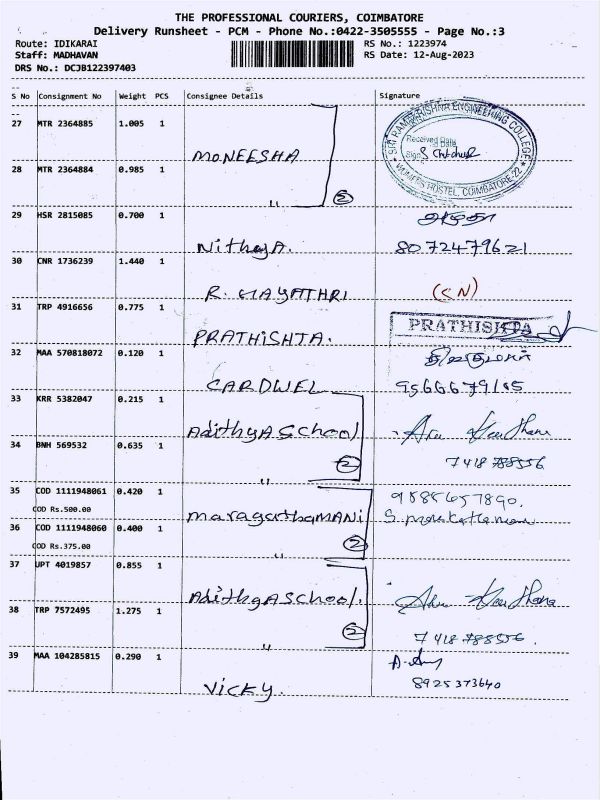 THE PROFESSIONAL COURIERS, COIMBATORE
Delivery Runsheet - PCM - Phone No.:0422-3505555 - Page No.:3
Route: IDIKARAI RS No.: 1223974
Staff: MADHAVAN RS Date: 12-Aug-2023
DRS No.: DCJB122397403
S No Consignment No Weight PCS Consignee Details Signature
27 MTR 2364885 1.005 1 MONEESHA
SRI RAMAKRISHNA ENGINEERING COLLEGE
Received Date
Sign
WOMENS HOSTEL, COIMBATORE-22
28 MTR 2364884 0.985 1 " 2
29 HSR 2815085 0.700 1 NithyA. 8072479621
30 CNR 1736239 1.440 1 R. GAYATHRI (SN)
31 TRP 4916656 0.775 1 PRATHISHTA. PRATHISHTA
32 MAA 570818072 0.120 1 CARDWEL 9566679185
33 KRR 5382047 0.215 1 AdithyA School
34 BNH 569532 0.635 1 2 7418 788556
35 COD 1111948061 0.420 1 maragathaMANi 9585657890.
COD Rs.500.00
36 COD 1111948060 0.400 1 " 2
COD Rs.375.00
37 UPT 4019857 0.855 1 AdithyA School.
38 TRP 7572495 1.275 1 " 2 7418 788556.
39 MAA 104285815 0.290 1 Vicky. 8925373640